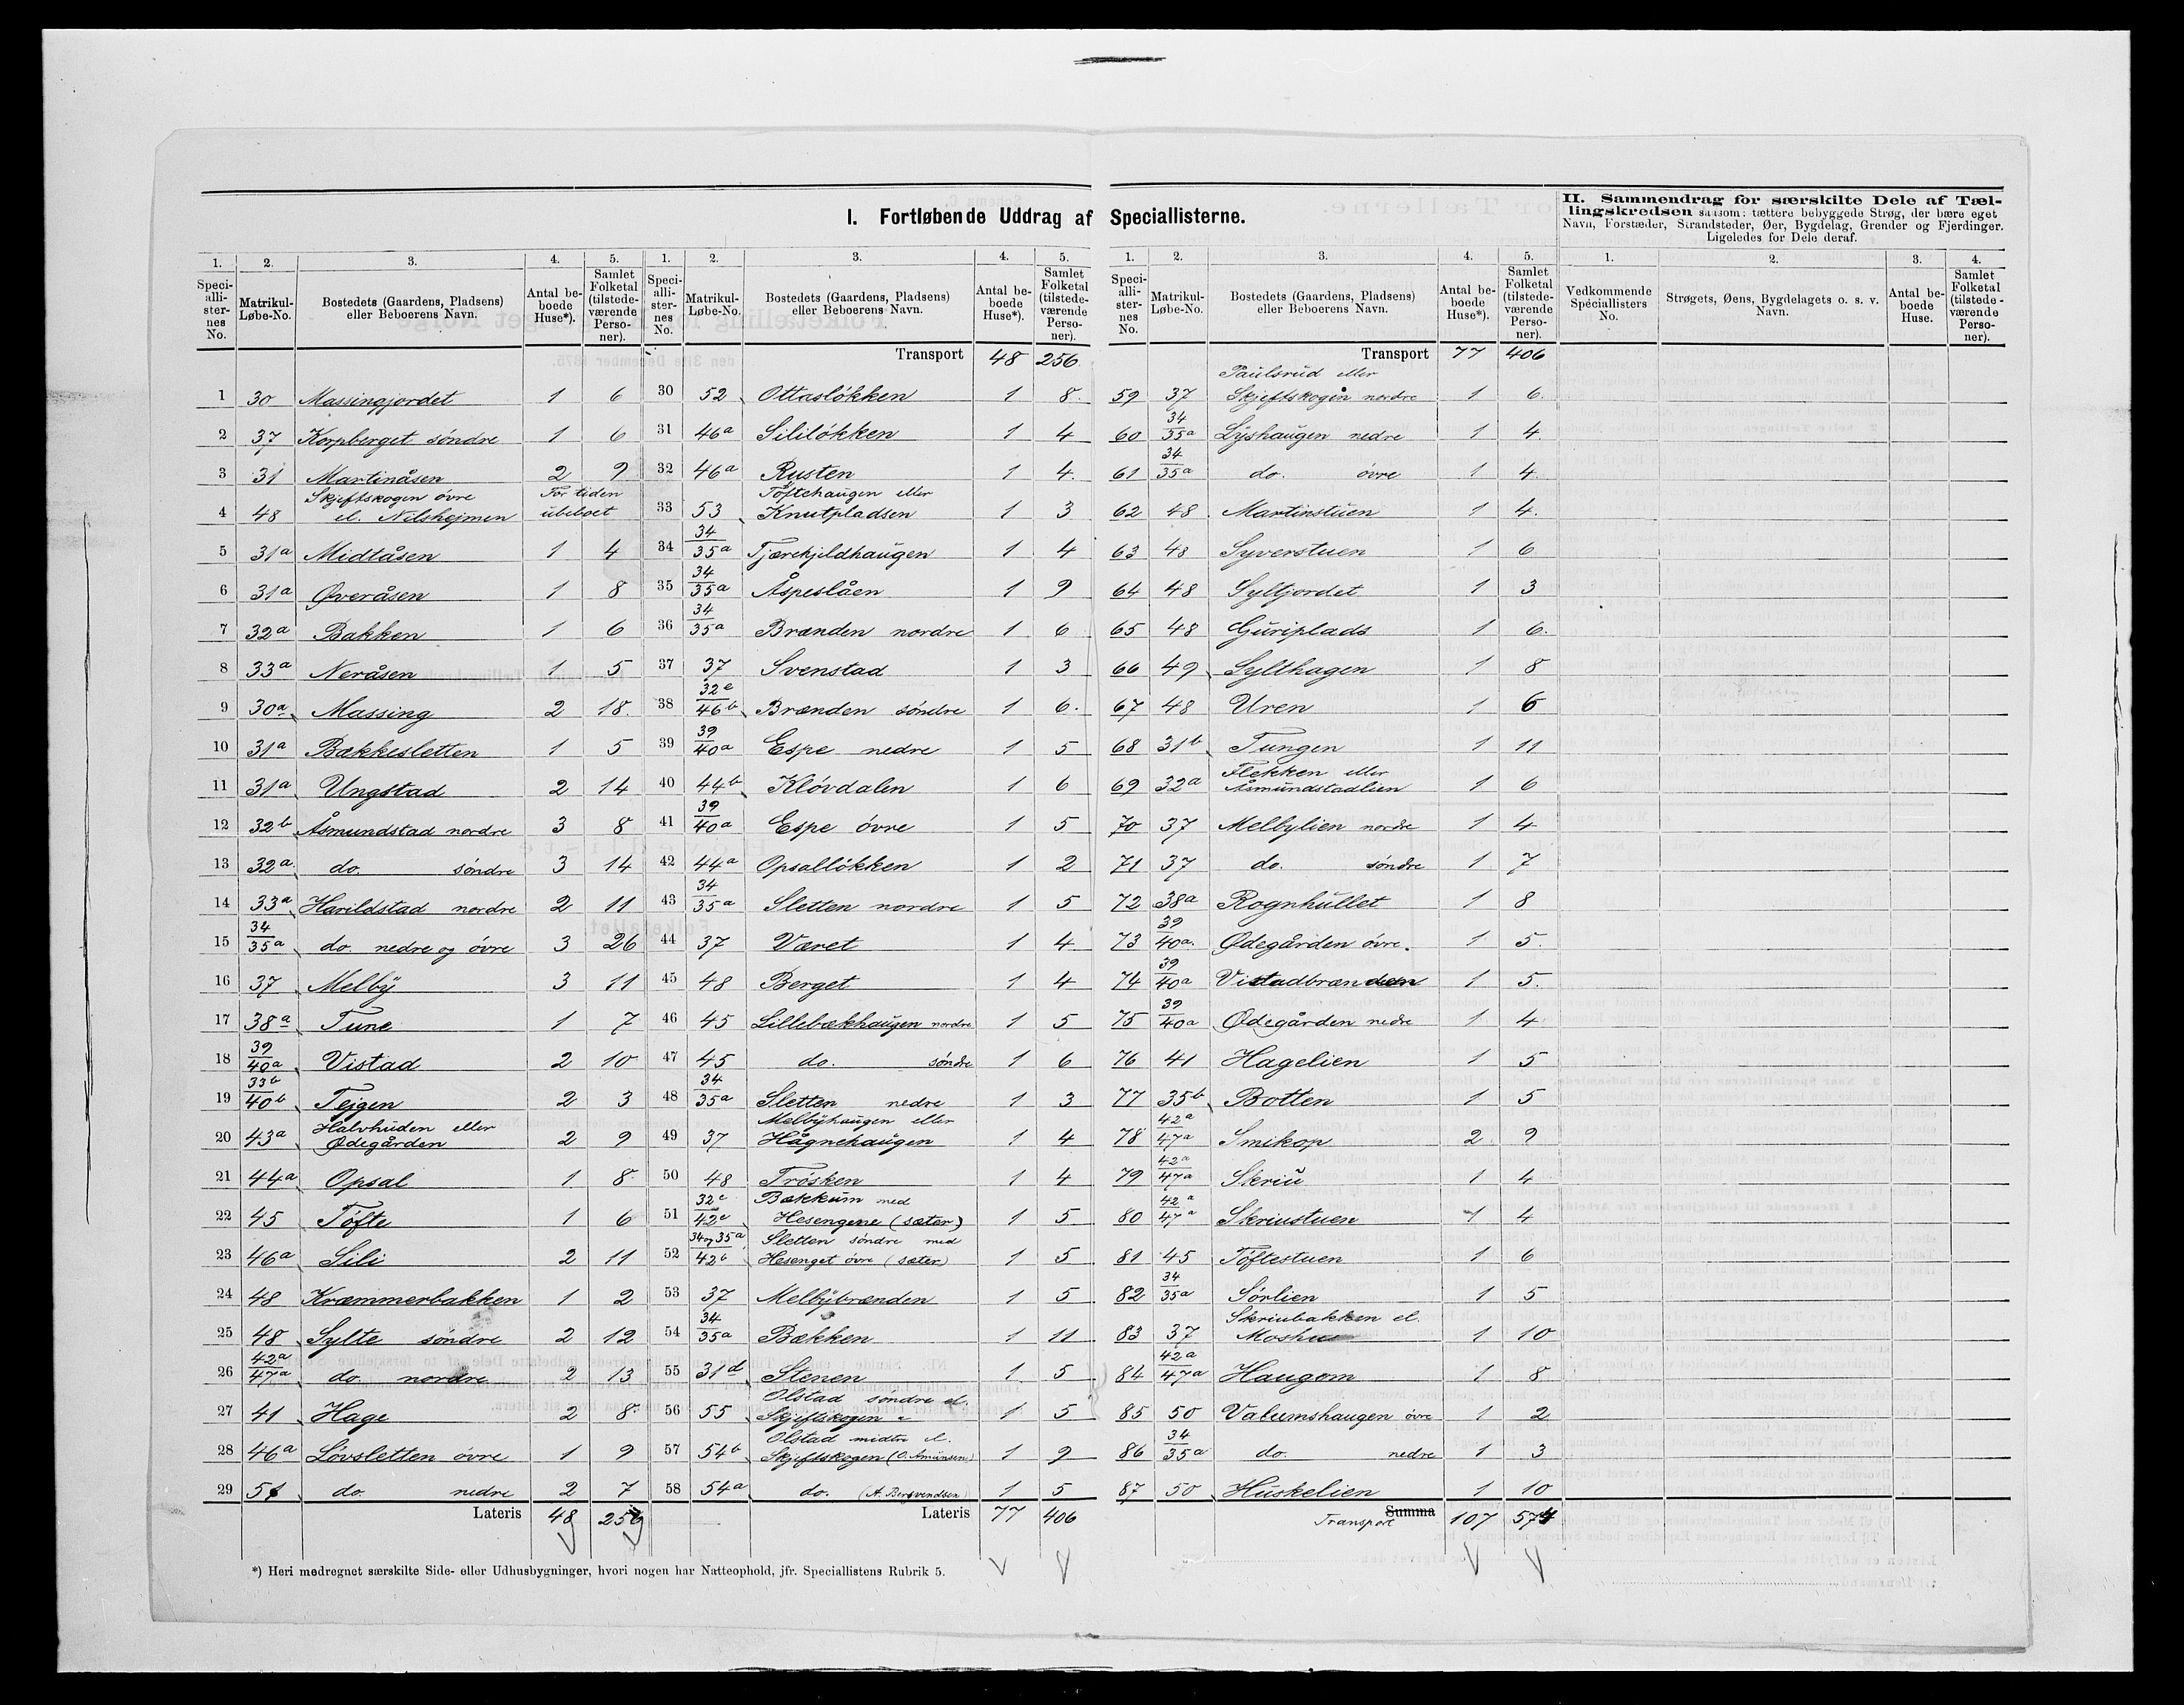 I. Fortløbende Uddrag af Speciallisterne.
II. Sammendrag for særskilte Dele af Tæl-
lingskredsen saasom: tættere bebyggede Strøg, der bære eget
Navn, Forstæder, Strandsteder, Øer, Bygdelag, Grender og Fjerdinger.
Ligeledes for Dele deraf.
1. 2. 3. 4. 5.
Speciallisternes No. Matrikul-Løbe-No. Bostedets (Gaardens, Pladsens) eller Beboerens Navn. Antal beboede Huse*). Samlet Folketal (tilstedeværende Personer).
1 30 Massingjordet 1 6
2 37 Korpberget söndre 1 6
3 31 Martinåsen 2 9
4 48 Skjeftskogen övre el. Nilshejmen For tiden ubeboet
5 31a Midtåsen 1 4
6 31a Øveråsen 1 8
7 32a Bakken 1 6
8 33a Neråsen 1 5
9 30a Massing 2 18
10 31a Bækkesletten 1 5
11 31a Ungstad 2 14
12 32b Åsmundstad nordre 3 8
13 32a do. söndre 3 14
14 33a Harildstad nordre 2 11
15 34/35a do. nedre og övre 3 26
16 37 Melby 3 11
17 38a Tune 1 7
18 39/40a Vistad 2 10
19 33b/40b Tejgen 2 3
20 43a Halvhuden eller Ødegården 2 9
21 44a Opsal 1 8
22 45 Töfte 1 6
23 46a Sili 2 11
24 48 Kræmmerbakken 1 2
25 48 Sylte söndre 2 12
26 42a/47a do. nordre 2 13
27 41 Hage 2 8
28 46a Lövsletten övre 1 9
29 51 do. nedre 2 7
Lateris 48 256
*) Heri medregnet særskilte Side- eller Udhusbygninger, hvori nogen har Natteophold, jfr. Speciallistens Rubrik 5.
1. 2. 3. 4. 5.
Speciallisternes No. Matrikul-Løbe-No. Bostedets (Gaardens, Pladsens) eller Beboerens Navn. Antal beboede Huse*). Samlet Folketal (tilstedeværende Personer).
Transport 48 256
30 52 Ottaslökken 1 8
31 46a Sililökken 1 4
32 46a Rusten 1 4
33 53 Töftehaugen eller Knutpladsen 1 3
34 34/35a Tjærekjeldhaugen 1 4
35 34/35a Åspeslåen 1 9
36 34/35a Brænden nordre 1 6
37 37 Svenstad 1 3
38 32e/46b Brænden söndre 1 6
39 39/40a Espe nedre 1 5
40 44b Klövdalen 1 6
41 39/40a Espe övre 1 5
42 44a Opsallökken 1 2
43 34/35a Sletten nordre 1 5
44 37 Været 1 4
45 48 Berget 1 4
46 45 Lillebækhaugen nordre 1 5
47 45 do. söndre 1 6
48 34/35a Sletten nedre 1 3
49 37 Melbyhaugen eller Hågnehaugen 1 4
50 48 Trösken 1 4
51 32c/42c Bækkum med Hesengene (sæter) 1 5
52 34 og 35a/42b Sletten söndre med Hesenget övre (sæter) 1 5
53 37 Melbybrænden 1 5
54 34/35a Bækken 1 11
55 31d Stenen 1 5
56 55 Olstad söndre el. Skjeftskogen " 1 5
57 54b Olstad midtre el. Skjeftskogen (O. Amundsen) 1 9
58 54a do. (A. Bersvendsen) 1 5
Lateris 77 406
1. 2. 3. 4. 5.
Speciallisternes No. Matrikul-Løbe-No. Bostedets (Gaardens, Pladsens) eller Beboerens Navn. Antal beboede Huse*). Samlet Folketal (tilstedeværende Personer).
Transport 77 406
59 37 Paulsrud eller Skjeftskogen nordre 1 6
60 34/35a Lyshaugen nedre 1 4
61 34/35a do. övre 1 4
62 48 Martinstuen 1 4
63 48 Syverstuen 1 6
64 48 Syltjordet 1 3
65 48 Guriplads 1 6
66 49 Sylthagen 1 8
67 48 Uren 1 6
68 31b Tungen 1 11
69 32a Flekken eller Åsmundstadlien 1 6
70 37 Melbylien nordre 1 4
71 37 do. söndre 1 7
72 38a Rognhullet 1 8
73 39/40a Ødegården övre 1 5
74 39/40a Vistadbrænden 1 5
75 39/40a Ødegården nedre 1 4
76 41 Hagelien 1 5
77 35b Botten 1 5
78 42a/47a Smikop 2 9
79 42a/47a Skriu 1 4
80 42a/47a Skriustuen 1 4
81 45 Töftestuen 1 6
82 34/35a Sörlien 1 5
83 37 Skriubakken el. Moshus 1 10
84 42a/47a Haugom 1 8
85 50 Valumshaugen övre 1 2
86 34/35a do. nedre 1 3
87 50 Huskelien 1 10
Summa
Transport 107 574
1. 2. 3. 4.
Vedkommende Speciallisters No. Strøgets, Øens, Bygdelagets o. s. v. Navn. Antal beboede Huse. Samlet Folketal (tilstedeværende Personer).